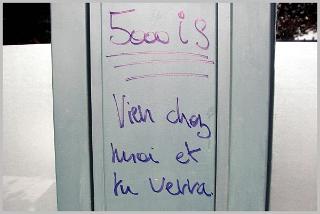 5000 is
Vien chez
moi et
tu verra